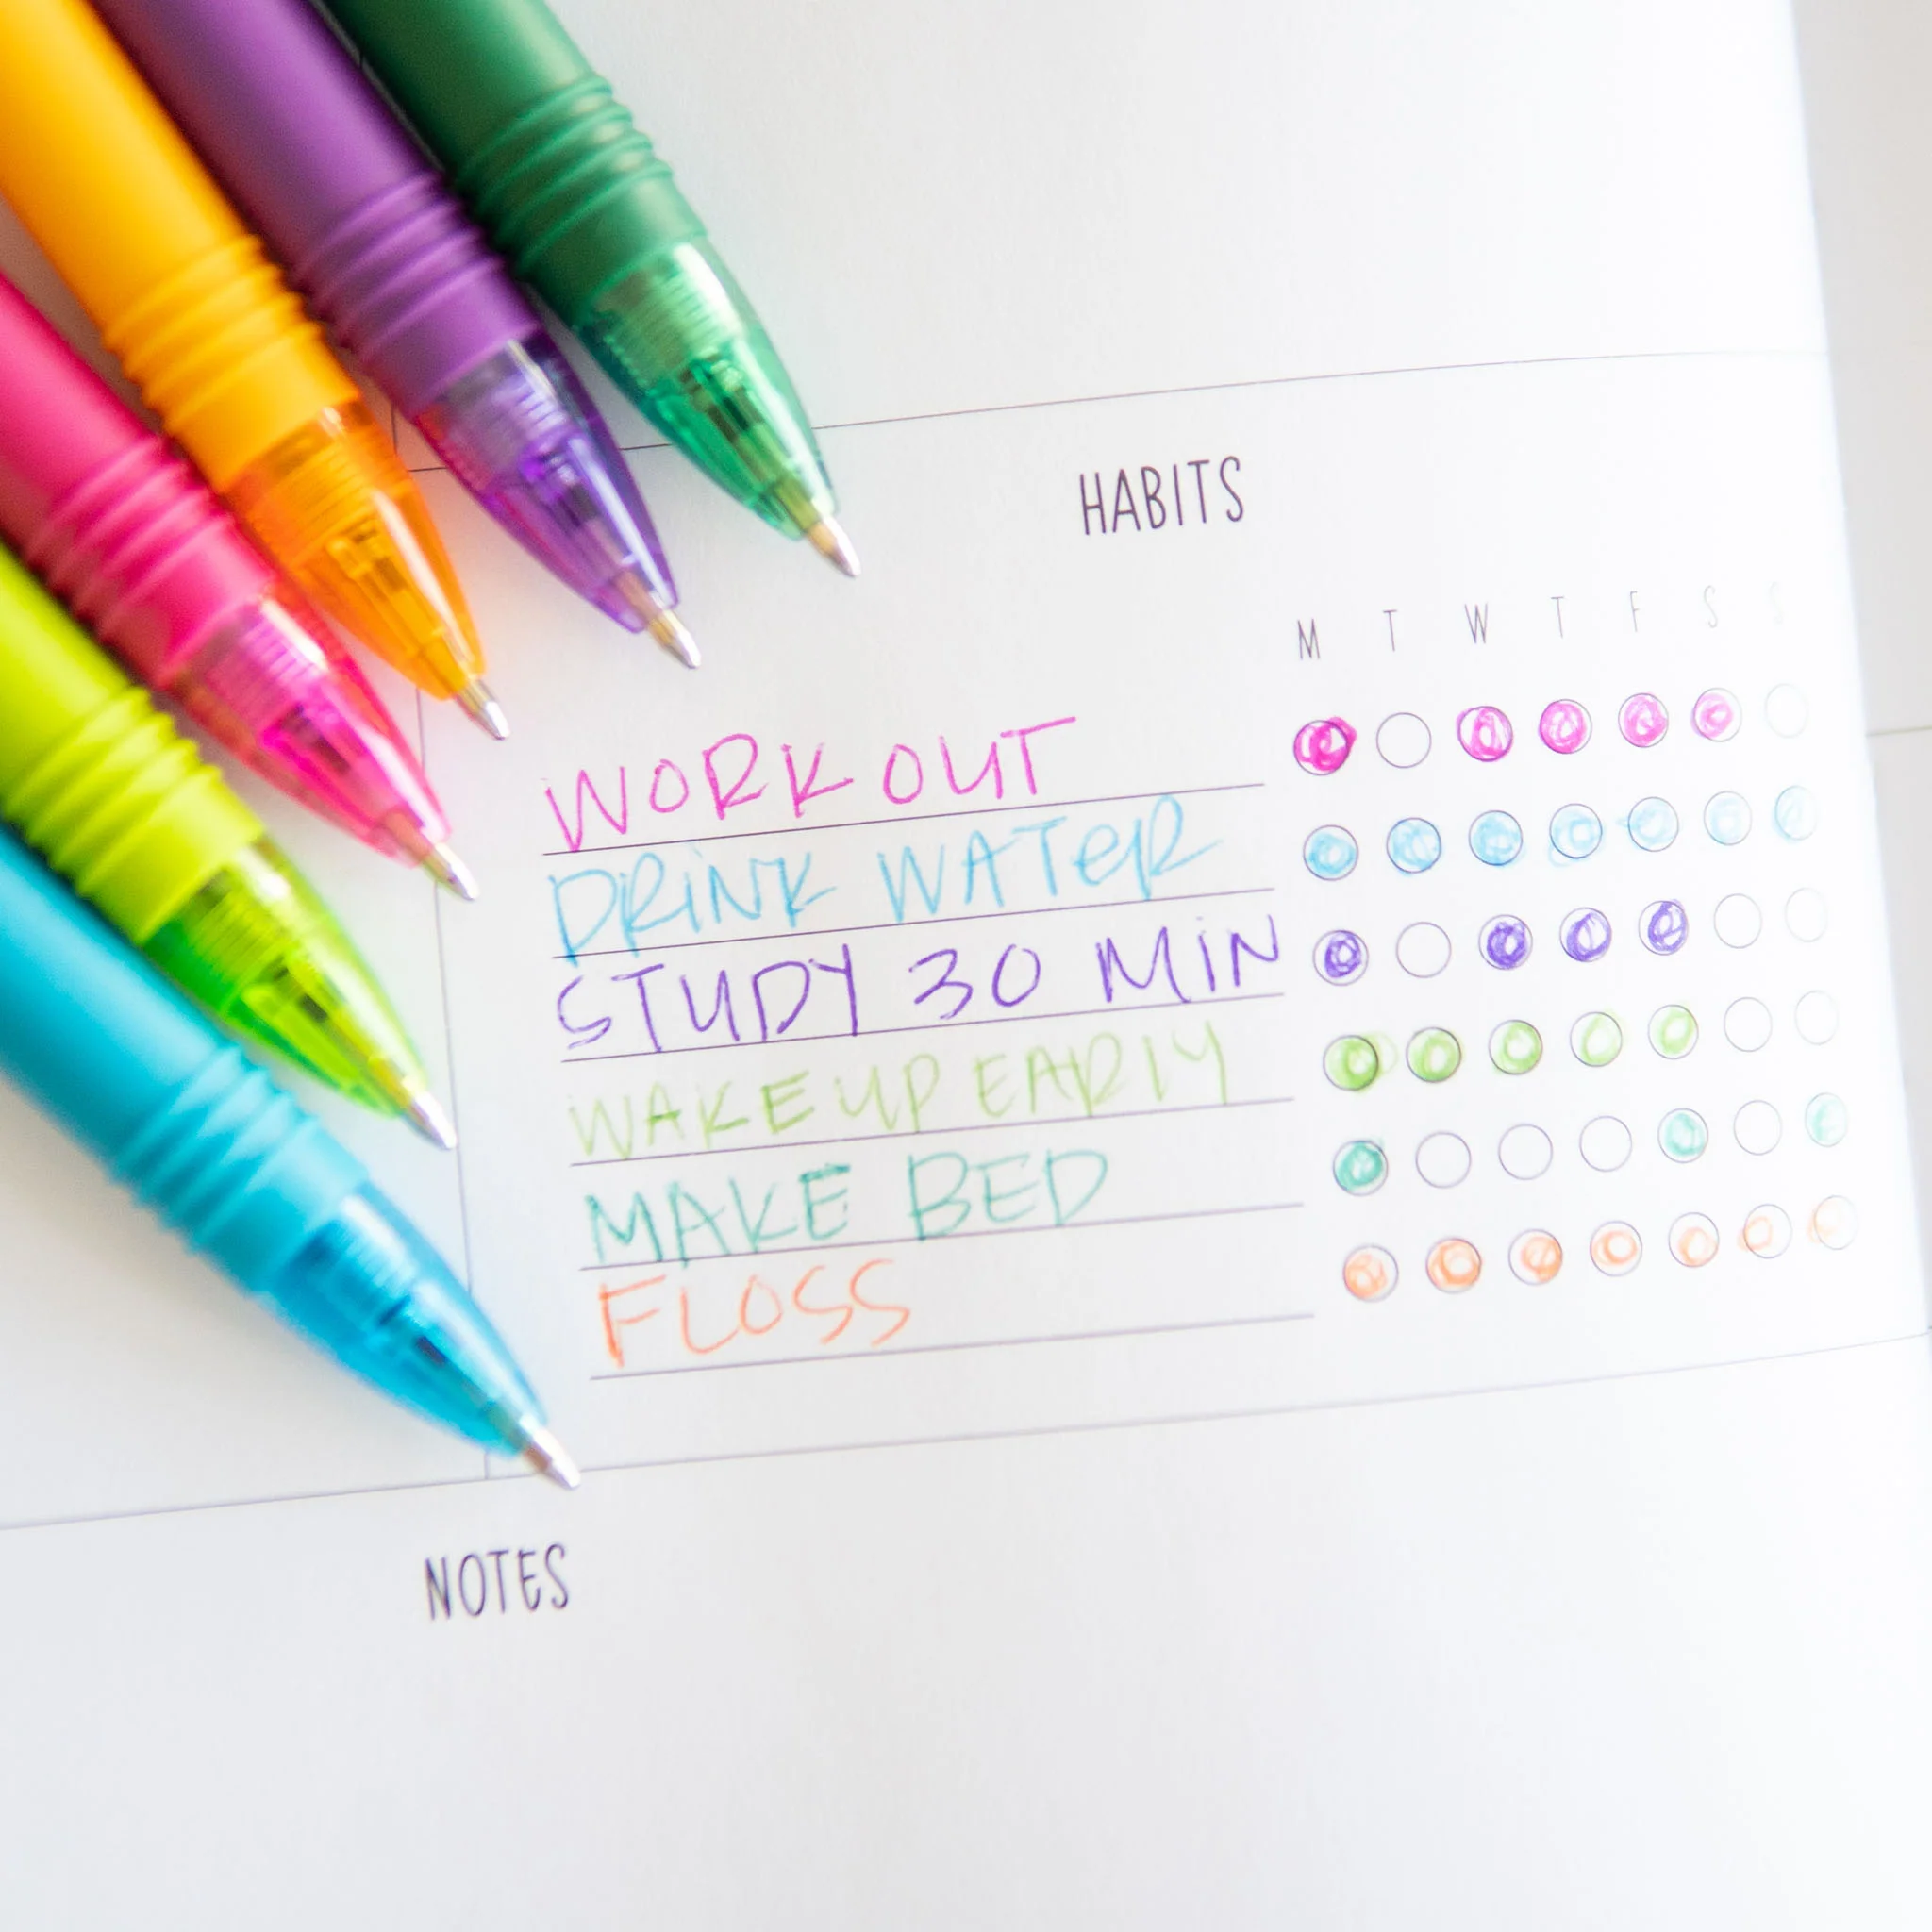 HABITS
M T W T F S S
WORK OUT
DRINK WATER
STUDY 30 MIN
WAKE UP EARLY
MAKE BED
FLOSS
NOTES